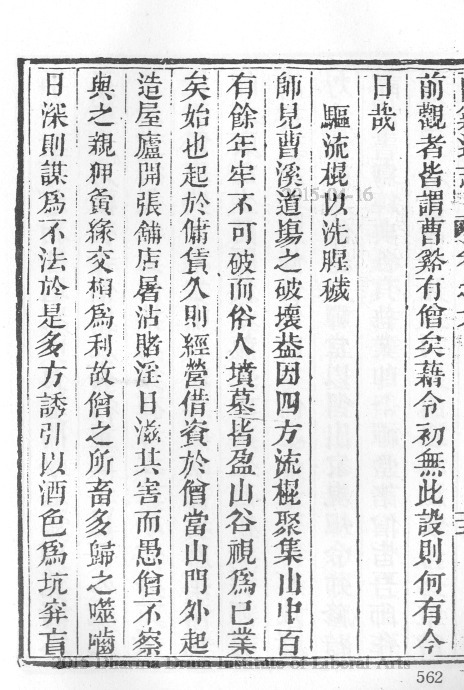 前觀者皆謂曹谿有僧矣藉令初無此設則何有今
日哉
驅流棍以洗腥穢
師見曹溪道塲之破壞葢因四方流棍聚集山中百
有餘年牢不可破而俗人墳墓皆盈山谷視爲已業
矣始也起於傭賃久則經營借資於僧當山門外起
造屋廬開張舖店屠沽賭淫日滋其害而愚僧不察
與之親狎夤緣交相爲利故僧之所畜多歸之噬嚙
日深則謀爲不法於是多方誘引以酒色爲坑穽盲
2015-04-16
2015 Dharma Drum Institute of Liberal Arts
562